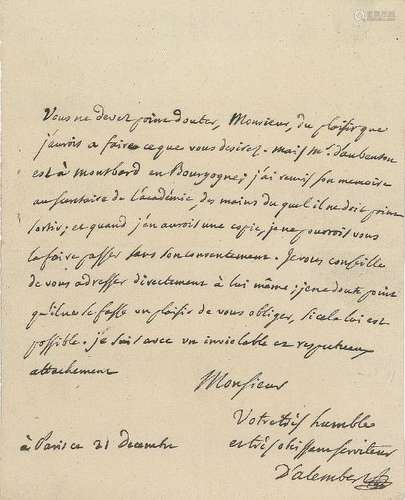 Vous ne devez point douter, Monsieur, du plaisir que
j'aurois a faire ce que vous desirez. mais Mr. d'aubenton
est à Montbard en Bourgogne; j'ai remis son memoire
au secretaire de l'académie des mains du quel il ne doit point
sortir; et quand j'en aurois une copie, je ne pourrois vous
la faire passer sans son consentement. Je vous conseille
de vous adresser directement à lui même: je ne doute point
qu'il ne se fasse un plaisir de vous obliger, si cela lui est
possible. je suis avec un inviolable et respectueux
attachement
Monsieur
Votre très humble
et très obéissant serviteur
à Paris ce 21 decembre
D'alembert